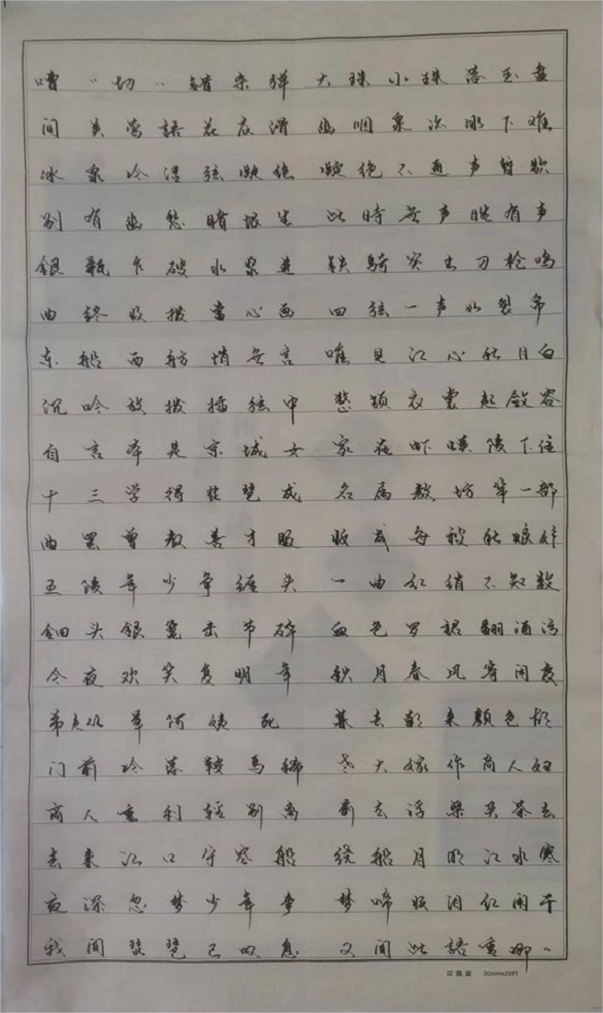 嘈〃切〃错杂弹 大珠小珠落玉盘
间关莺語花底滑 幽咽泉流冰下难
冰泉冷涩弦凝绝 凝绝不通声暂歇
别有幽愁暗恨生 此时无声胜有声
银瓶乍破水浆迸 铁骑突出刀枪鸣
曲终收拨当心画 四弦一声如裂帛
东船西舫悄无言 唯见江心秋月白
沉吟放拨插弦中 整顿衣裳起敛容
自言本是京城女 家在虾蟆陵下住
十三学得琵琶成 名属教坊第一部
曲罢曾教善才服 妆成每被秋娘妒
五陵年少争缠头 一曲红绡不知数
钿头银篦击节碎 血色罗裙翻酒污
今夜欢笑复明年 秋月春风等闲度
弟走从军阿姨死 暮去朝来颜色故
门前冷落鞍马稀 老大嫁作商人妇
商人重利轻别离 前去浮梁买茶去
去来江口守空船 绕船月明江水寒
夜深忽梦少年事 梦啼妆泪红阑干
我闻琵琶已叹息 又闻此語重唧〃
中画版 30mmx20行